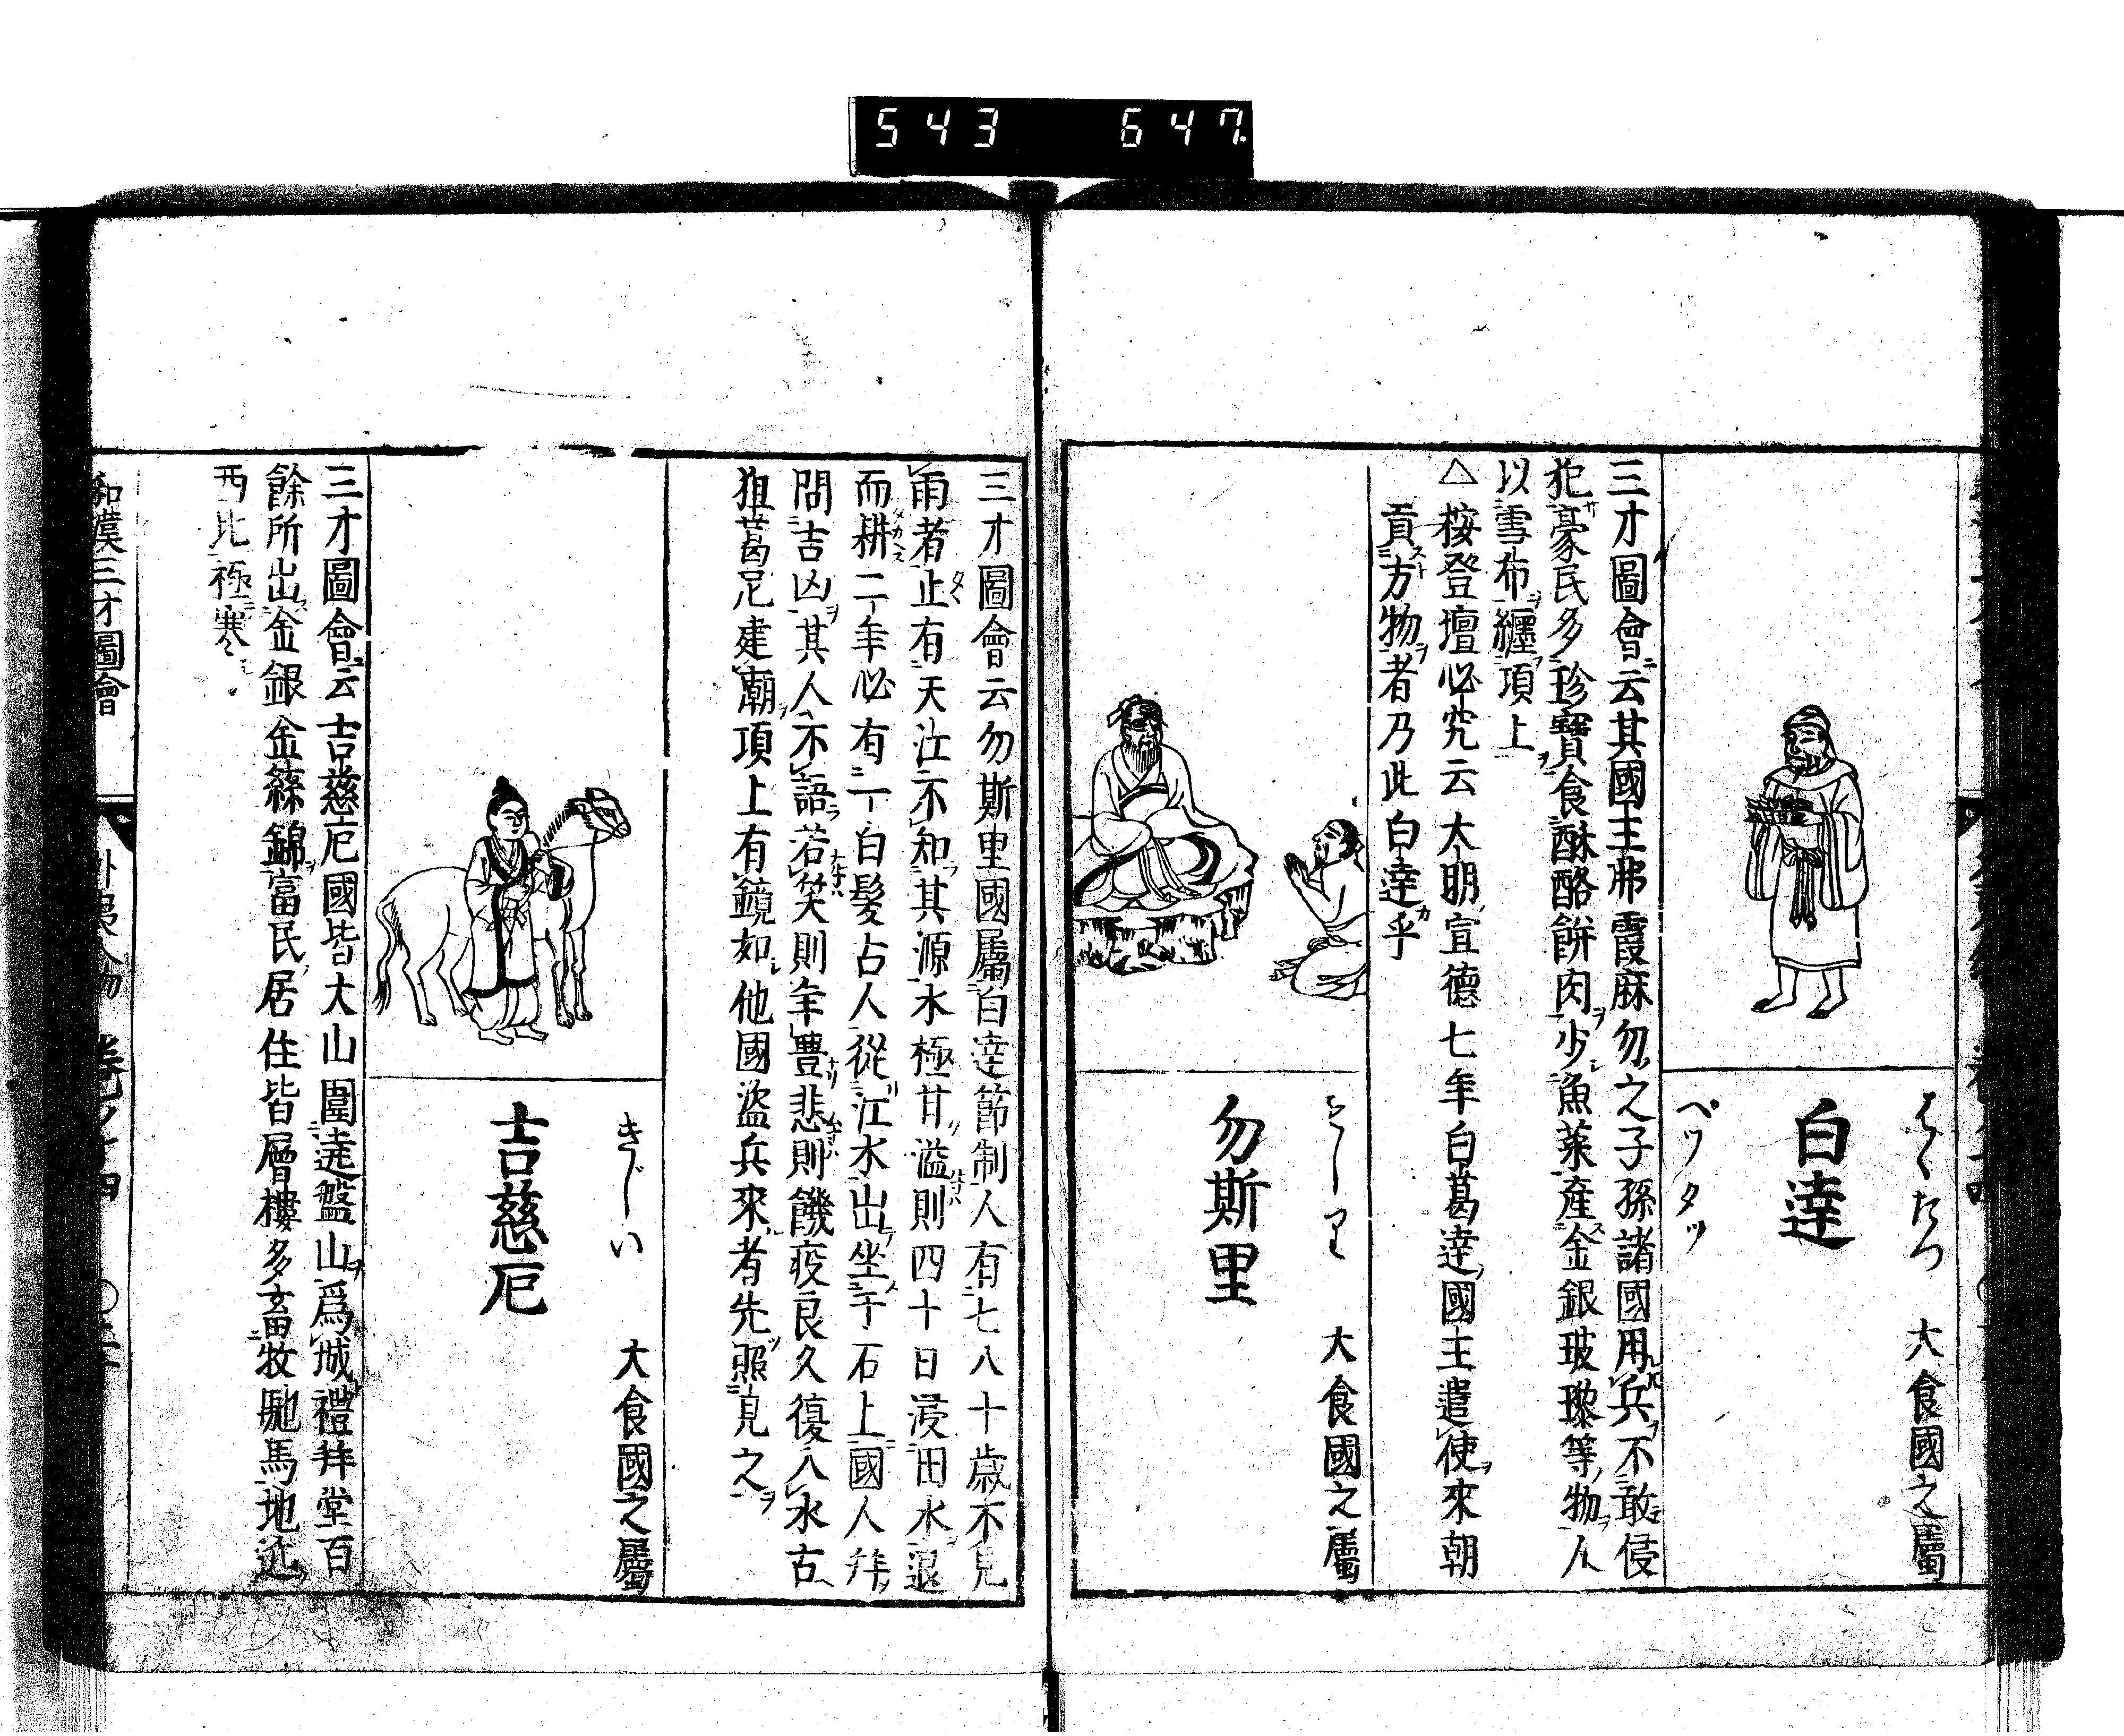 543 647
はくたつ
大食國之屬
白達
ペツタツ
三才圖會云其國王弗霞麻勿之子孫諸國用兵不敢侵
犯豪民多珍寶食酥酪餅肉少魚菜產金銀玻瓈等物人
以雪布纏項上
△桉登壇必究云大明宣德七年白葛達國王遣使來朝
貢方物者乃此白達乎
大食國之屬
勿斯里
三才圖會云勿斯里國屬白達節制人有七八十歲不見
雨者止有天江不知其源水極甘溢則四十日浸田水退
而耕二年必有一白髮占人從江水出坐于石上國人拜
問吉凶其人不語若笑則年豊悲則饑疫良久復入水古
狙葛尼建廟項上有鏡如他國盜兵來者先照見之
きじい
大食國之屬
吉慈厄
三才圖會云吉慈厄國皆大山圍遶盤山爲城禮拜堂百
餘所出金銀金絲錦富民居住皆層樓多畜牧駞馬地近
西北極寒
和漢三才圖會 外夷人物 卷之十四